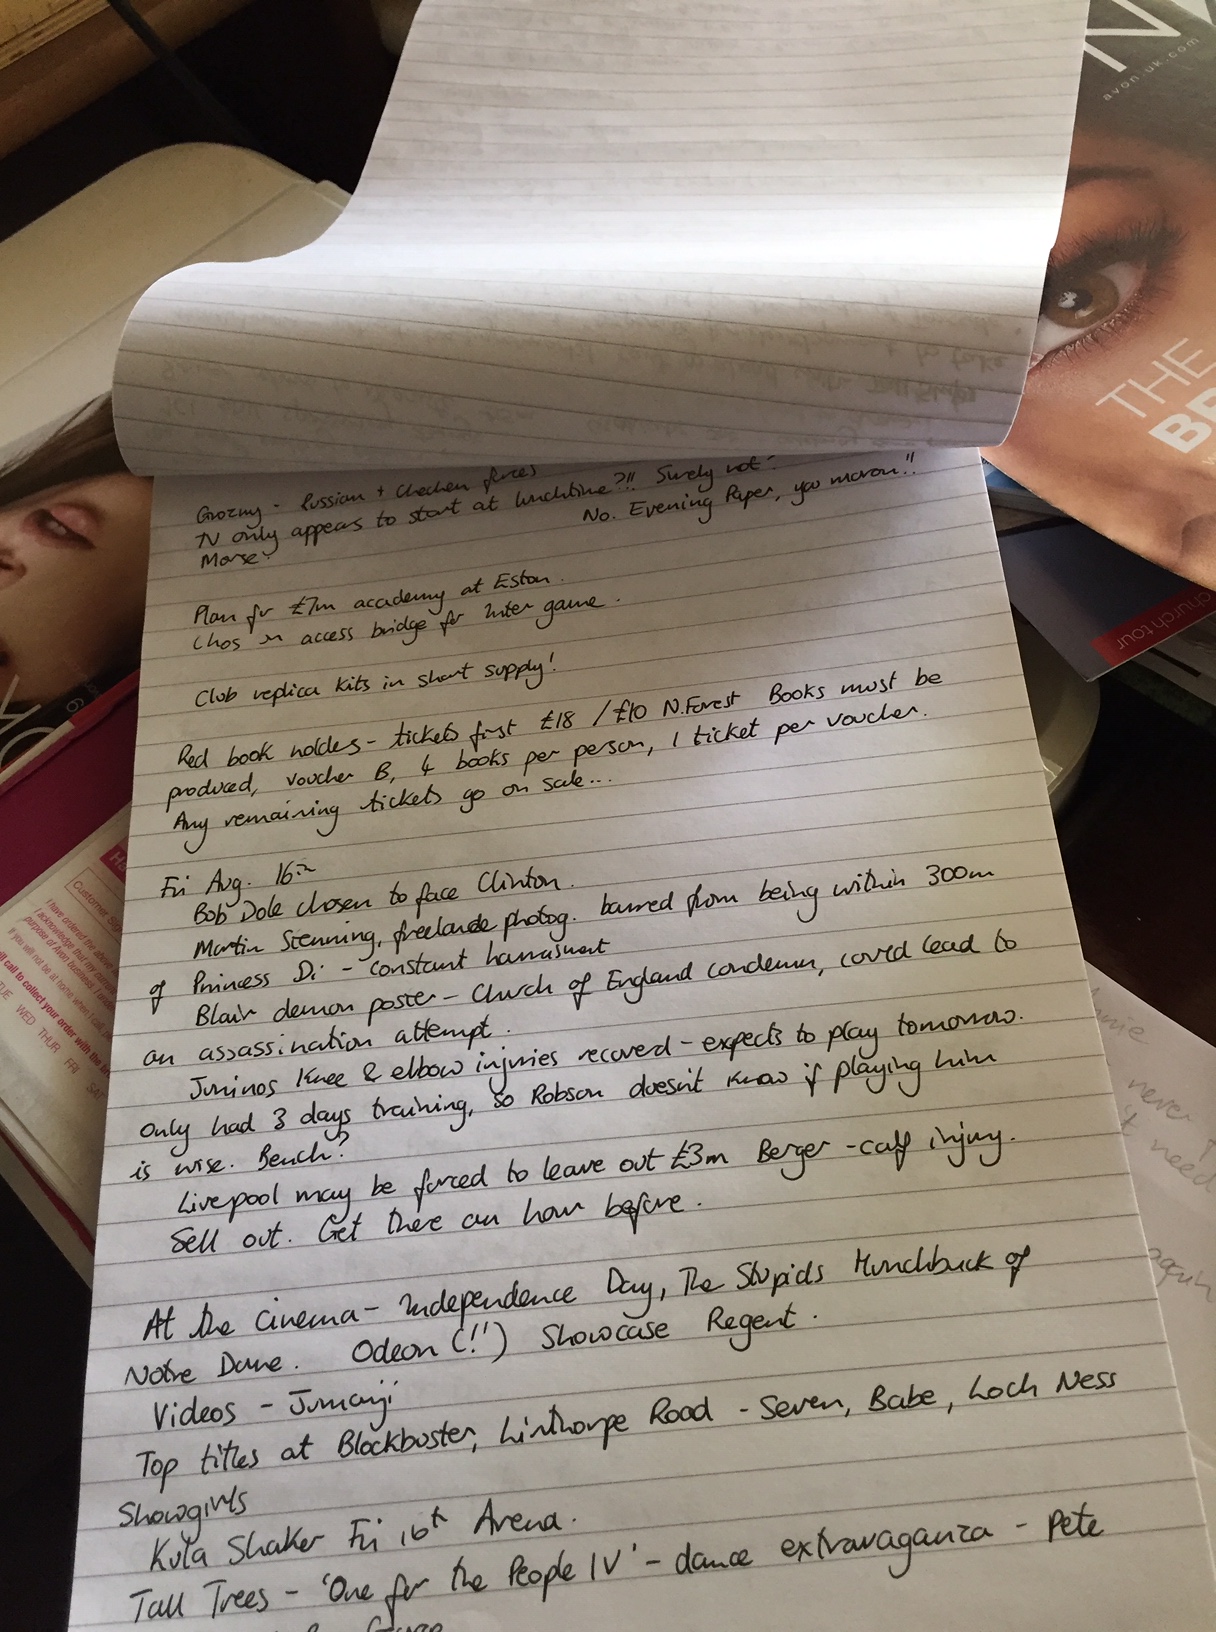 Grozny - Russian + Chechen forces
TV only appears to start at lunchtime?!! Surely not?
Morse? No. Evening Paper, you moron!!
Plan for £7m academy at Eston.
on access bridge for Inter game.
Club replica kits in short supply!
Red book holders - tickets first £18 / £10 N.Forest Books must be
produced, voucher B, 4 books per person, 1 ticket per voucher.
Any remaining tickets go on sale...
Fri Aug. 16th
Bob Dole chosen to face Clinton.
Martin Stenning, freelance photog. barred from being within 300m
of Princess Di - constant harrasment
Blair demon poster - Church of England condemn, could lead to
an assassination attempt.
Juninos knee & elbow injuries recovered - expects to play tomorrow.
Only had 3 days training, so Robson doesn't know if playing him
is wise. Bench?
Liverpool may be forced to leave out £3m Berger - calf injury.
Sell out. Get there an hour before.
At the cinema - Independence Day, The Stupids Hunchback of
Notre Dame. Odeon (!!) Showcase Regent.
Videos - Jumanji
Top titles at Blockbuster, Linthorpe Road - Seven, Babe, Loch Ness
Showgirls
Kula Shaker Fri 16th Arena.
Tall Trees - 'One for the People IV' - dance extravaganza - Pete
avon.uk.com
THE
church tour
Customer
WED THUR FRI
never
need
again